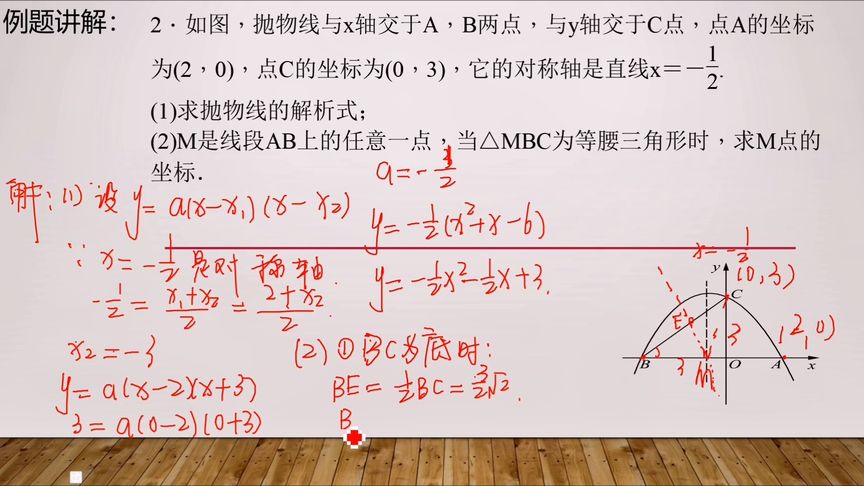 例题讲解：
2．如图，抛物线与x轴交于A，B两点，与y轴交于C点，点A的坐标
为(2，0)，点C的坐标为(0，3)，它的对称轴是直线x＝－1/2.
(1)求抛物线的解析式；
(2)M是线段AB上的任意一点，当△MBC为等腰三角形时，求M点的
坐标．
解：(1) 设 y = a(x-x₁)(x-x₂)
∵ x = -1/2 是对称轴.
-1/2 = (x₁+x₂)/2 = (2+x₂)/2.
x₂ = -3
y = a(x-2)(x+3)
3 = a(0-2)(0+3)
a = -1/2
y = -1/2(x²+x-6)
y = -1/2x²-1/2x+3.
(2) ① BC为底时：
BE = 1/2BC = 3/2√2.
B
x = -1/2
y
(0,3)
C
E
3
(2,0)
3
B
M
O
A
x